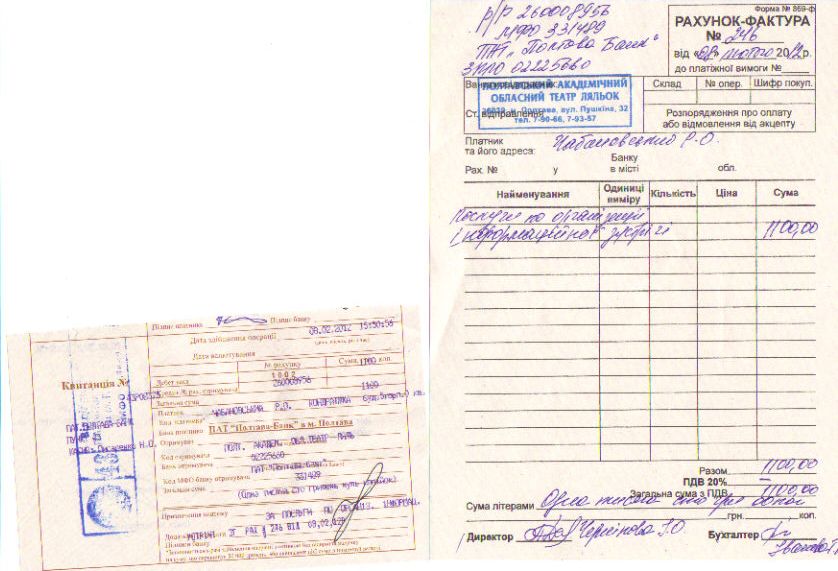 р/р 260008956
МФО 331489
ПАТ „Полтава Банк"
ЗКПО 02225660
Форма № 869-ф
РАХУНОК-ФАКТУРА
№ 246
від «08» лютого 2012р.
до платіжної вимоги №
ПОЛТАВСЬКИЙ АКАДЕМІЧНИЙ
ОБЛАСНИЙ ТЕАТР ЛЯЛЬОК
36020 м. Полтава, вул. Пушкіна, 32
тел. 7-90-66, 7-93-57
Ст. відправлення
Склад № опер. Шифр покуп.
Розпорядження про оплату
або відмовлення від акцепту
Платник
та його адреса: Чабановський Р.О.
Рах. № у Банку в місті обл.
Найменування Одиниці виміру Кількість Ціна Сума
Послуги по організації
інформаційної зустрічі 1100,00
Разом 1100,00
ПДВ 20% –
Загальна сума з ПДВ 1100,00
Сума літерами Одна тисяча сто грн 00 коп
грн. коп.
Директор Чернінова Г.О Бухгалтер
Підпис платника Підпис банку
Дата здійснення операції 08.02.2012 15:50:56
Дата валютування
№ рахунку Сума, 1100 коп.
Квитанція №
Дебет 1002
260008956
Загальна сума 1100
Платник ЧАБАНОВСЬКИЙ Р.О.
ПАТ.ПОЛТАВА-БАНК
Банк платника ПАТ "Полтава-Банк" в м. Полтава
Отримувач ПОЛТ. АКАДЕМ. ОБЛ.ТЕАТР ЛЯЛЬ
Касир: Писаренко Н.О.
Код отримувача 02225660
Банк отримувача ПАТ "Полтава-банк"
Код МФО банку отримувача 331489
Загальна сума (Одна тисяча сто гривень нуль копійок)
Призначення платежу ЗА ПОСЛУГИ ПО ОРГАНІЗ. ІНФОРМАЦ.
ЗГ РАХ 246 ВІД 08.02.12р
Підписи банку